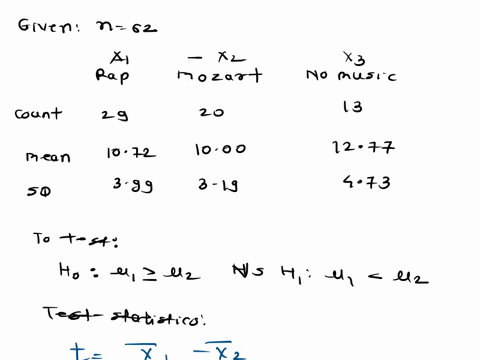 Given: n=62
x1 - x2 x3
Rap mozart No music
count 29 20 13
mean 10.72 10.00 12.77
SD 3.99 3.19 4.73
To test:
H0 : μ1 ≥ μ2 V/s H1 : μ1 < μ2
Test statistics:
t = x̄1 - x̄2